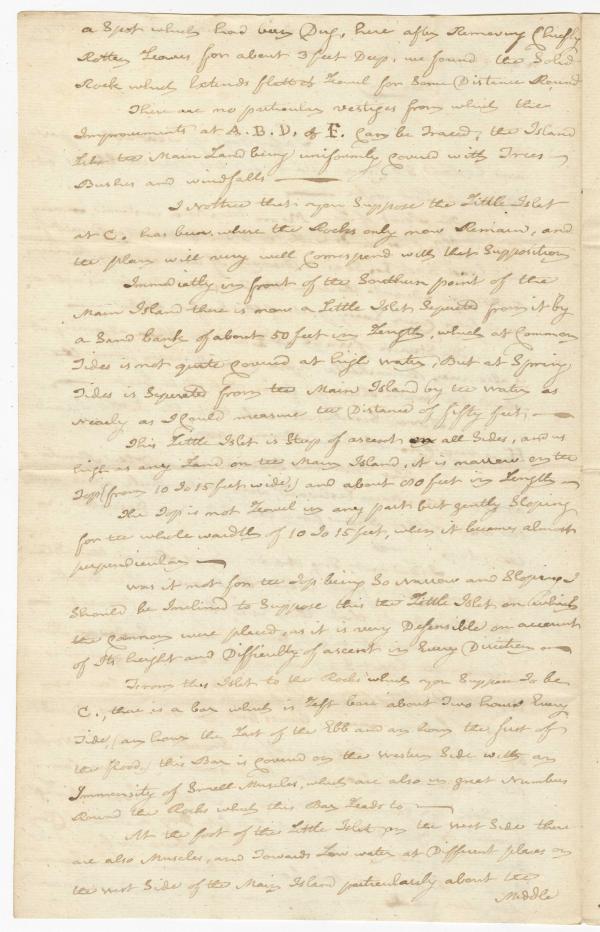 a Spot which had been Dug, here after Removing Chiefly
Rotten Leaves for about 3 feet Deep, we found the Solid
Rock which Extends flatt & Level for Some Distance Round
There are no particular vestiges from which the
Improvements at A. B. D. & F. Can be Traced, the Island
Like the Main Land being uniformly Covered with Trees
Bushes and windfalls —
I Nottice that you Suppose the Little Islet
at C. has been, where the Rocks only now Remain, and
the plan will very well Correspond with that Supposition
Immediatly in front of the Southern point of the
Main Island there is now a Little Islet Seperated from it by
a Sand bank of about 50 feet in Length, which at Common
Tides is not quite Covered at high water, But at Spring
Tides is Seperated from the Main Island by the water as
Nearly as I Could measure the Distance of fifty feet, —
This Little Islet is Steep of ascent on all Sides, and as
high as any Land on the Main Island, it is narrow on the
Top (from 10 To 15 feet wide,) and about 80 feet in Length —
The Top is not Level in any part but gently Sloping
for the whole wardth of 10 To 15 feet, when it becomes almost
perpendicular —
was it not for the Top being So Narrow and Sloping I
Should be Inclined to Suppose this the Little Islet on which
the Cannon were placed, as it is very Defensible on account
of Its height and Difficulty of ascent in Every Direction —
From this Islet to the Rocks which you Suppose To be
C., there is a bar which is Left bare about Two hours Every
Tide, (an hour the Last of the Ebb and an hour the first of
the flood,) this Bar is Covered on the Western Side with an
Immensity of Small Muscles, which are also in great Numbers
Round the Rocks which this Bar Leads to —
At the foot of the Little Islet on the West Side there
are also Muscles, and Towards Low water at Different places on
the west Side of the Main Island particularly about the
Middle